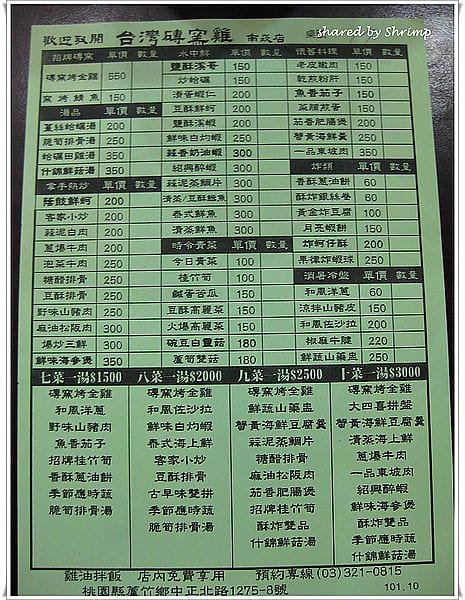 shared by Shrimp
歡迎取閱 台灣磚窯雞 南崁店
招牌磚窯 單價 數量
磚窯烤全雞 550
窯烤鯖魚 150
湯品 單價 數量
薑絲蛤蠣湯 200
脆筍排骨湯 250
蛤蠣田雞湯 350
什錦鮮菇湯 350
拿手熱炒 單價 數量
蔭豉鮮蚵 200
客家小炒 200
蒜泥白肉 200
蔥爆牛肉 250
泡菜牛肉 250
糖醋排骨 250
豆酥排骨 250
野味山豬肉 250
麻油松阪肉 300
爆炒三鮮 300
鮮味海參煲 350
水中鮮 單價 數量
鹽酥溪哥 150
炒蛤蠣 150
滑蛋蝦仁 200
豆酥鮮蚵 200
鹽酥溪蝦 200
鮮味白灼蝦 250
蒜香奶油蝦 300
紹興醉蝦 300
蒜泥蒸鯛片 250
清蒸/豆酥鱈魚 250
泰式鮮魚 300
清蒸鮮魚 300
時令青菜 單價 數量
今日青菜 100
桂竹筍 100
鹹蛋苦瓜 150
豆酥高麗菜 150
火爆高麗菜 150
豌豆白靈菇 180
蘆筍雙菇 180
懷舊料理 單價 數量
老皮嫩肉 150
乾煎粉肝 150
魚香茄子 150
菜脯煎蛋 150
茄香肥腸煲 200
蟹黃海鮮羹 250
一品東坡肉 350
炸類 單價 數量
香酥蔥油餅 60
酥炸銀絲卷 60
黃金炸豆腐 100
月亮蝦餅 150
炸蚵仔酥 200
果律炸蝦球 250
消暑冷盤 單價 數量
和風洋蔥 60
涼拌山豬皮 150
和風佐沙拉 200
椒麻牛腱 220
鮮蔬山藥盅 250
七菜一湯$1500
磚窯烤全雞
和風洋蔥
野味山豬肉
魚香茄子
招牌桂竹筍
香酥蔥油餅
季節應時蔬
脆筍排骨湯
八菜一湯$2000
磚窯烤全雞
和風佐沙拉
鮮味白灼蝦
泰式海上鮮
客家小炒
豆酥排骨
古早味雙拼
季節應時蔬
脆筍排骨湯
九菜一湯$2500
磚窯烤全雞
鮮蔬山藥盅
蟹黃海鮮豆腐羹
蒜泥蒸鯛片
糖醋排骨
麻油松阪肉
茄香肥腸煲
招牌桂竹筍
酥炸雙品
什錦鮮菇湯
十菜一湯$3000
磚窯烤全雞
大四喜拼盤
蟹黃海鮮豆腐羹
清蒸海上鮮
蔥爆牛肉
一品東坡肉
紹興醉蝦
鮮味海參煲
酥炸雙品
季節應時蔬
什錦鮮菇湯
雞油拌飯 店內免費享用 預約專線(03)321-0815
桃園縣蘆竹鄉中正北路1275-8號 101.10